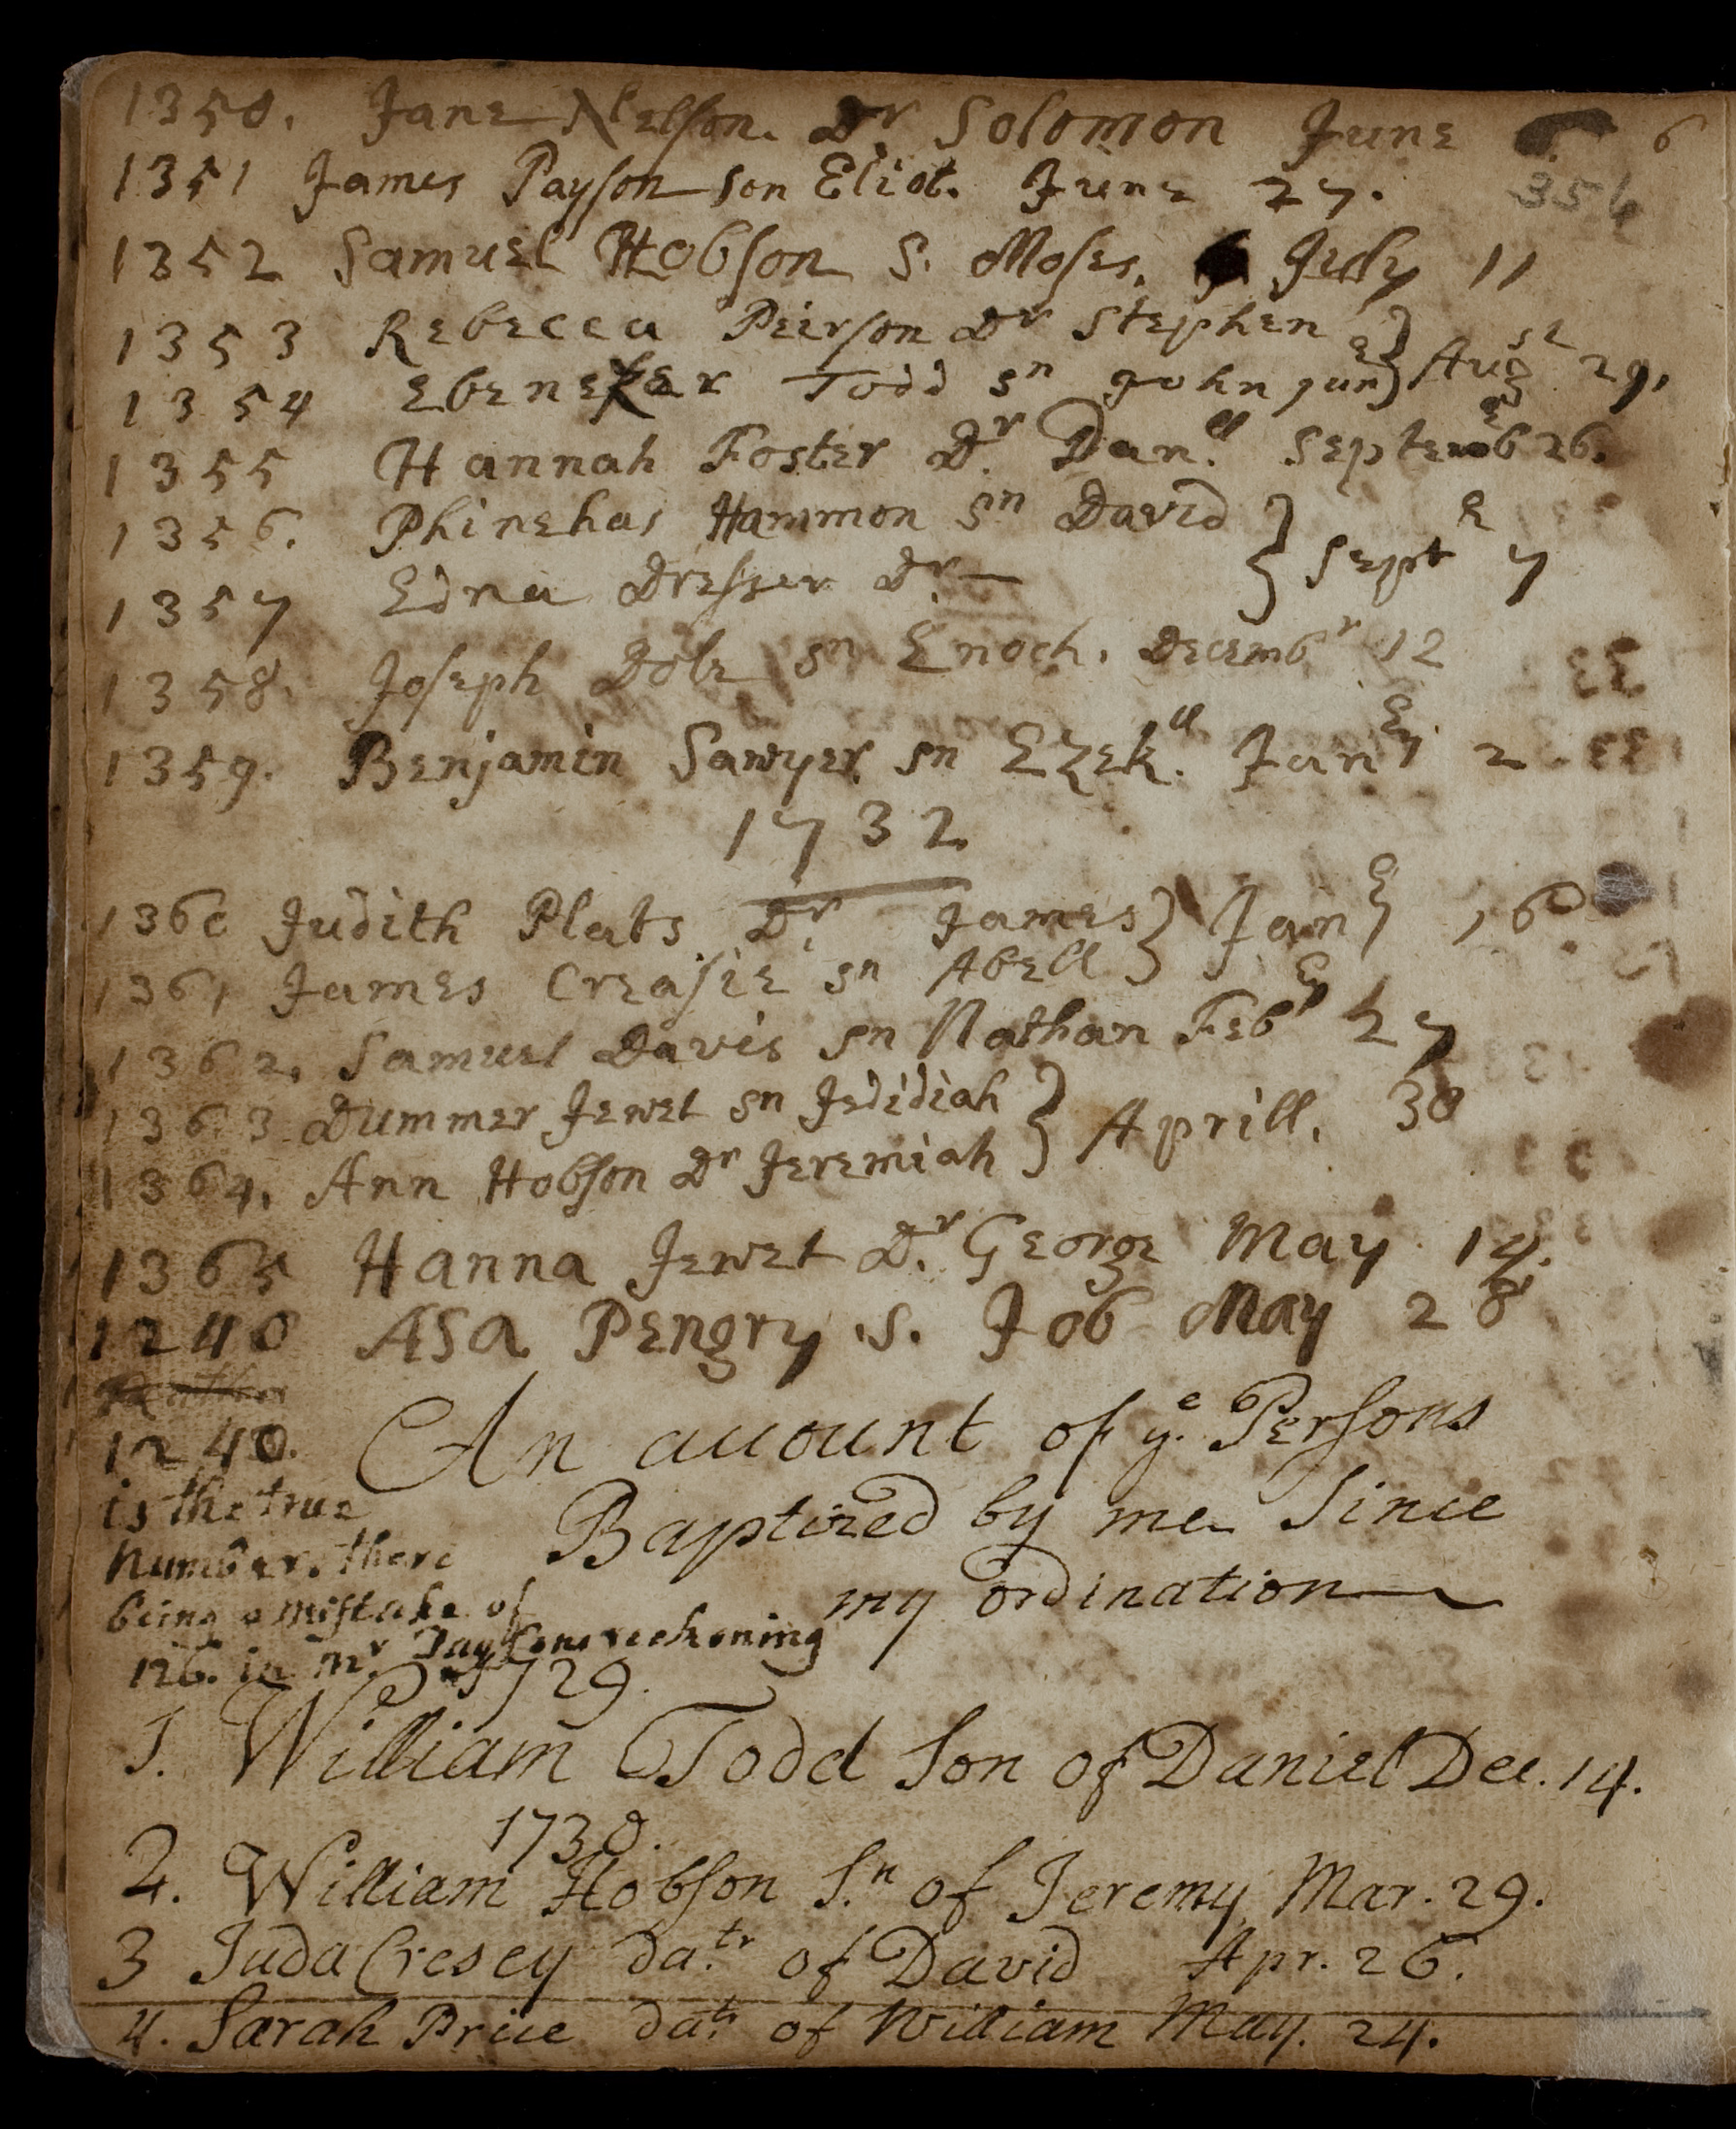 1350. Jane Nelson. Dr Solomon June 6
354
1351 James Payson son Eliot. June 27.
1352 Samuel Hobson S. Moses. July 11
1353 Rebecca Peirson Dr Stephen
1354 Ebenezer Todd sn John junr } Augst 29.
1355 Hannah Foster Dr. Danll Septembr 26.
1356. Phinehas Hammon sn David
1357 Edna Dresser Dr. — } Septr 7
1358. Joseph Dole sn Enoch. Decembr 12
1359. Benjamin Sawyer sn Ezekll. Janry 2
1732
1360 Judith Plats Dr. James } Janry 16
1361 James Creasie sn Abell
1362. Samuel Davis sn Nathan Febry 27
1363 Dummer Jewet sn Jedidiah } Aprill. 30
1364. Ann Hobson Dr Jeremiah
1365 Hanna Jewet Dr. George May 14.
1240 Asa Pengry .s. Job May 28
1240. An account of ye. Persons
is the true Baptized by me Since
number. there my ordination
being a mistake of
126. in mr. Paysons reckoning
1729.
1. William Todd Son of Daniel Dec. 14.
1730.
2. William Hobson S.n of Jeremy Mar. 29.
3 Juda Cresey da.tr of David Apr. 26.
4. Sarah Price da.tr of William May. 24.